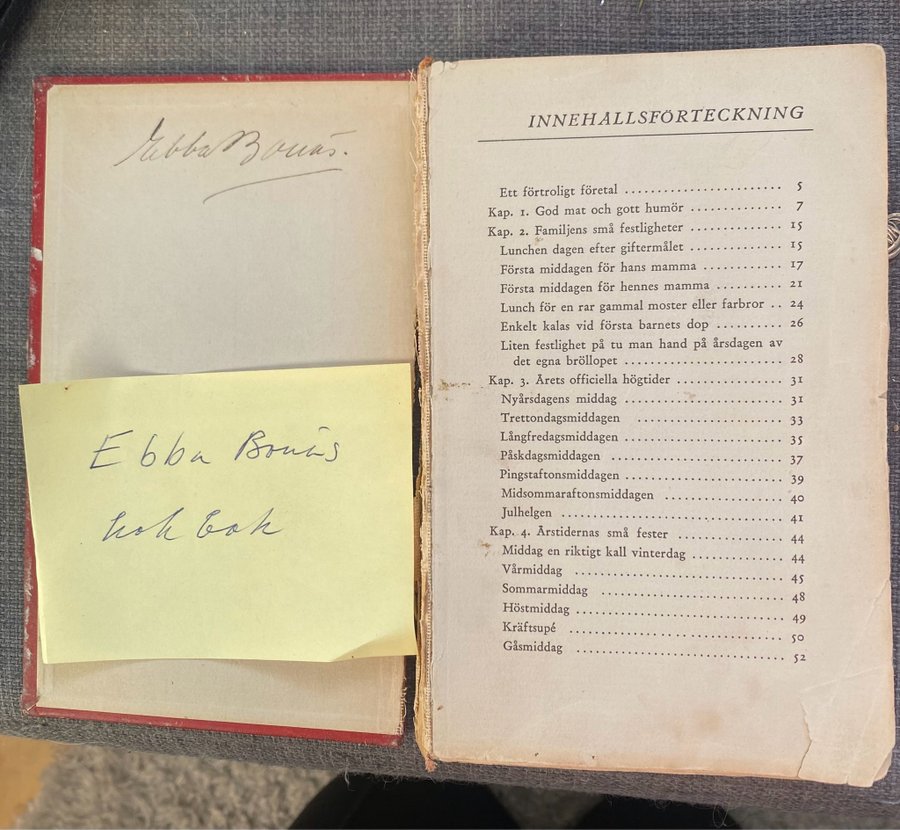 Ebba Bonäs.
Ebba Bonäs
kok bok
INNEHÅLLSFÖRTECKNING
Ett förtroligt företal ........................ 5
Kap. 1. God mat och gott humör .............. 7
Kap. 2. Familjens små festligheter ................ 15
Lunchen dagen efter giftermålet ............... 15
Första middagen för hans mamma ............ 17
Första middagen för hennes mamma .......... 21
Lunch för en rar gammal moster eller farbror .. 24
Enkelt kalas vid första barnets dop .......... 26
Liten festlighet på tu man hand på årsdagen av
det egna bröllopet ........................ 28
Kap. 3. Årets officiella högtider ................ 31
Nyårsdagens middag ........................ 31
Trettondagsmiddagen ...................... 33
Långfredagsmiddagen ........................ 35
Påskdagsmiddagen ........................ 37
Pingstaftonsmiddagen ........................ 39
Midsommaraftonsmiddagen .................. 40
Julhelgen .................................. 41
Kap. 4. Årstidernas små fester .................. 44
Middag en riktigt kall vinterdag ................ 44
Vårmiddag ................................ 45
Sommarmiddag ............................ 48
Höstmiddag ................................ 49
Kräftsupé ................................ 50
Gåsmiddag ................................ 52